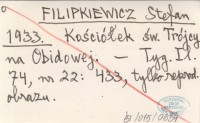 FILIPKIEWICZ Stefan
1933. Kościółek św. Trójcy
na Obidowej. — Tyg. Il.
74, nr 22: 433, tylko reprod.
obrazu.